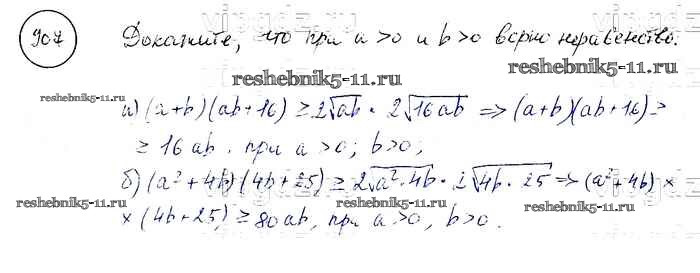 907 Докажите, что при a > 0 и b > 0 верно неравенство.
reshebnik5-11.ru.
reshebnik5-11.ru.
reshebnik5-11.ru.
а) (a+b)(ab+16) ≥ 2√ab · 2√16ab => (a+b)(ab+16) ≥
≥ 16ab. при a > 0; b > 0;
б) (a² + 4b)(4b + 25) ≥ 2√a²·4b · 2√4b·25 => (a² + 4b) ×
× (4b + 25) ≥ 80ab, при a > 0, b > 0.
reshebnik5-11.ru.
reshebnik5-11.ru